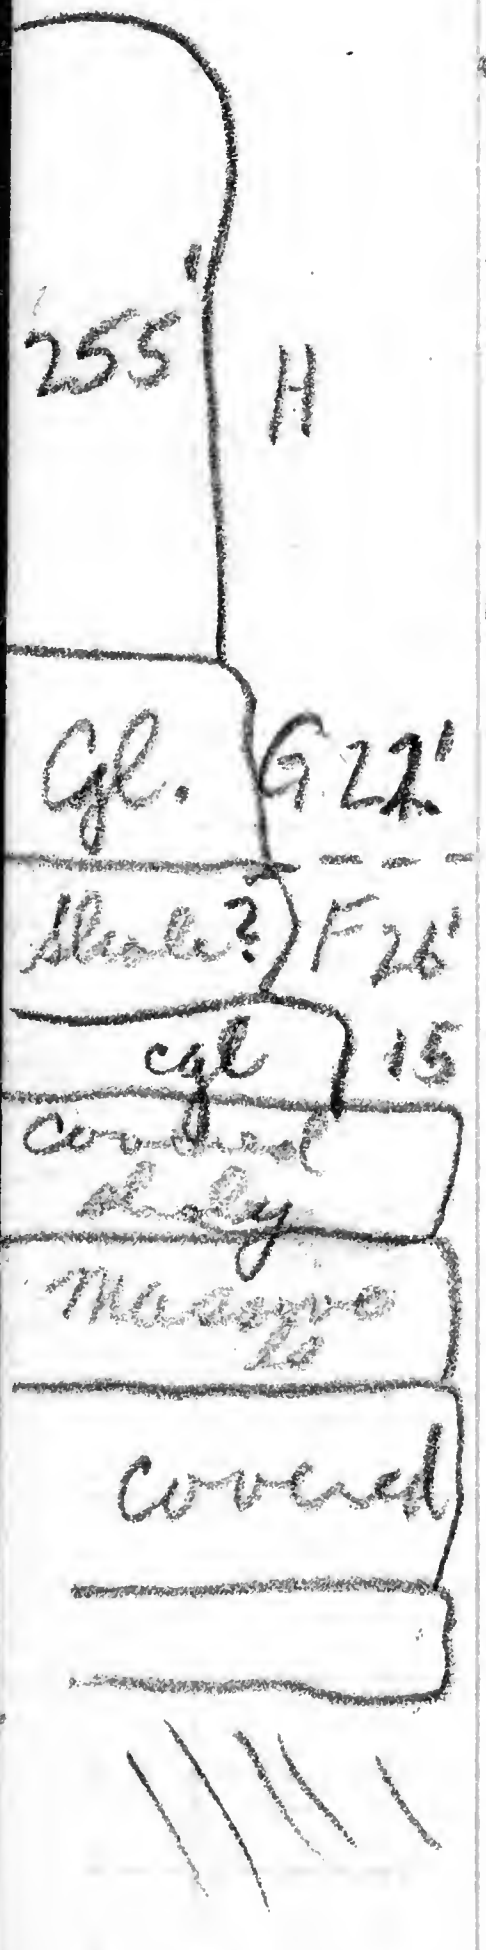 255' H
Cgl. G 22'
Shale? F 26'
cgl 15
covered
shaly
Massive
ls
covered